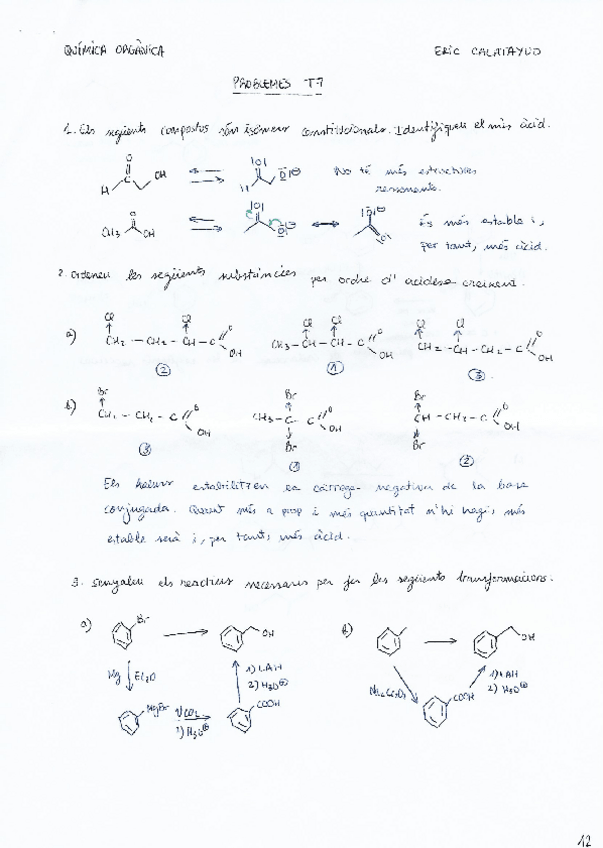 QUÍMICA ORGÀNICA ERIC CALATAYUD
PROBLEMES T-7
1. Els següents compostos són isòmers constitucionals. Identifiqueu el més àcid.
O OH |O| |O|⊖
H C H
No té més estructures
ressonants.
O |O| |O|⊖
CH3 OH |O|⊖ |O|
És més estable i,
per tant, més àcid.
2. Ordeneu les següents substàncies per ordre d'acidesa creixent.
a) Cl Cl Cl Cl Cl Cl
CH2 - CH2 - CH - C O OH CH3 - CH - CH - C O OH CH2 - CH - CH2 - C O OH
② ① ③
b) Br Br Br
CH2 - CH2 - C O OH CH3 - C - C O OH CH - CH2 - C O OH
Br Br
③ ① ②
Els halurs estabilitzen la càrrega negativa de la base
conjugada. Quant més a prop i més quantitat n'hi hagi, més
estable serà i, per tant, més àcid.
3. Senyaleu els reactius necessaris per fer les següents transformacions.
a) Br OH b) OH
Mg Et2O 1) LAH 2) H3O⊕ Na2Cr2O7 1) LAH 2) H3O⊕
MgBr 1) CO2 2) H3O⊕ COOH COOH
12